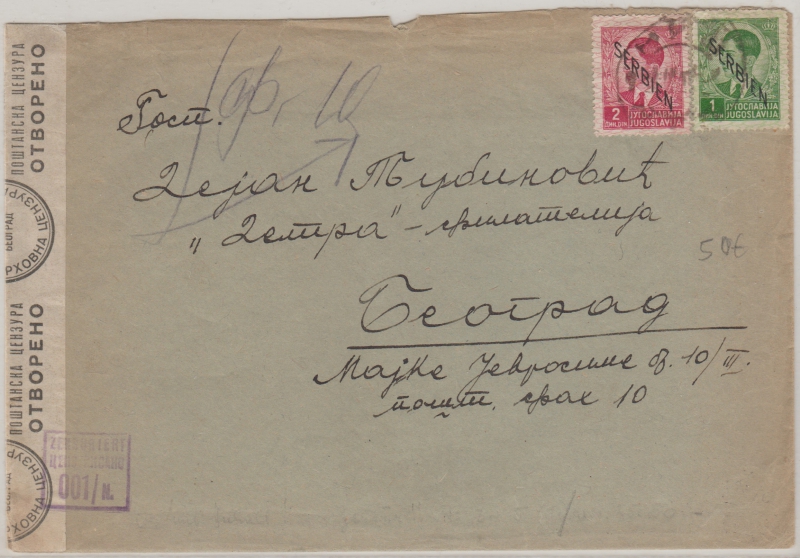 ПОШТАНСКА ЦЕНЗУРА
ОТВОРЕНО
БЕОГРАД
ВРХОВНА ЦЕНЗУРА
ПОШТАНСКА ЦЕНЗУРА
ОТВОРЕНО
ВРХОВНА ЦЕНЗУРА
ZENSURIERT
ЦЕНЗУРИСАНО
001/N.
SERBIEN
2
ДИН. DIN.
ЈУГОСЛАВИЈА
JUGOSLAVIJA
SERBIEN
1
ДИН. DIN.
ЈУГОСЛАВИЈА
JUGOSLAVIJA
фр. 10
Госп.
Дејан Турбиновић
„Земра" - филателија
Београд
Мајке Јевросиме б. 10/III.
пошт. фах 10
50€